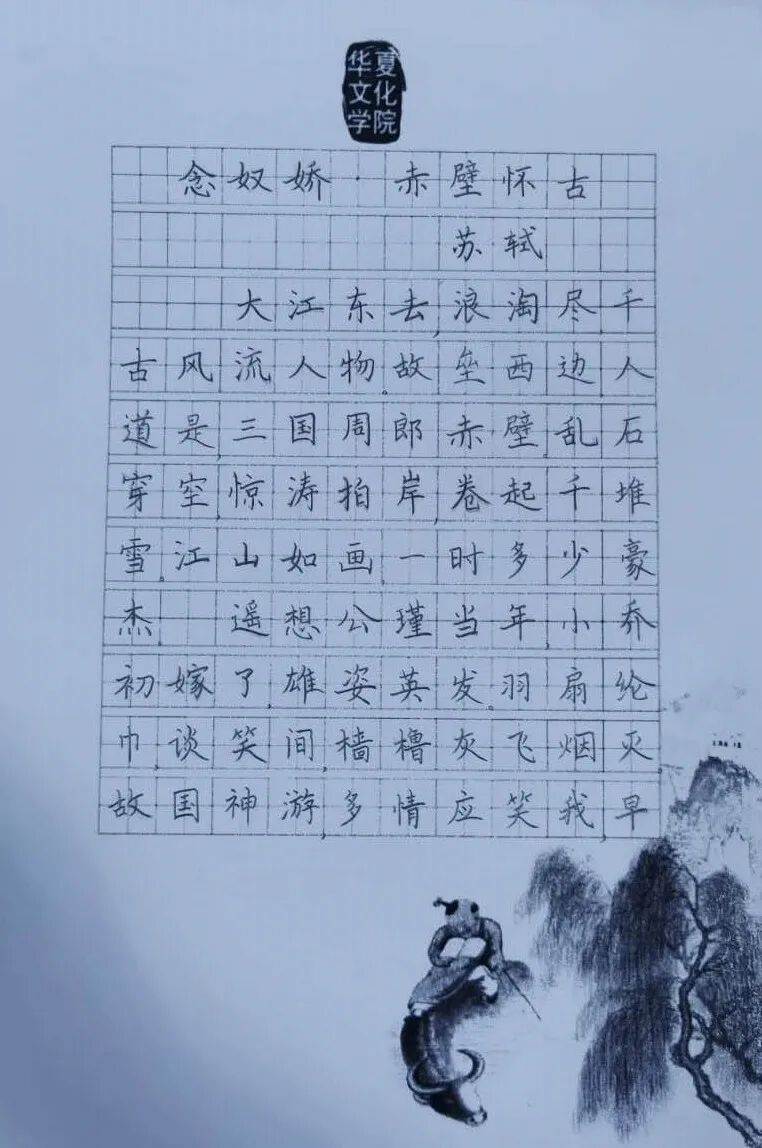 华夏
文化
学院
念奴娇·赤壁怀古
苏轼
大江东去,浪淘尽千
古风流人物。故垒西边,人
道是,三国周郎赤壁。乱石
穿空,惊涛拍岸,卷起千堆
雪。江山如画,一时多少豪
杰。 遥想公瑾当年,小乔
初嫁了,雄姿英发。羽扇纶
巾,谈笑间,樯橹灰飞烟灭。
故国神游,多情应笑我,早